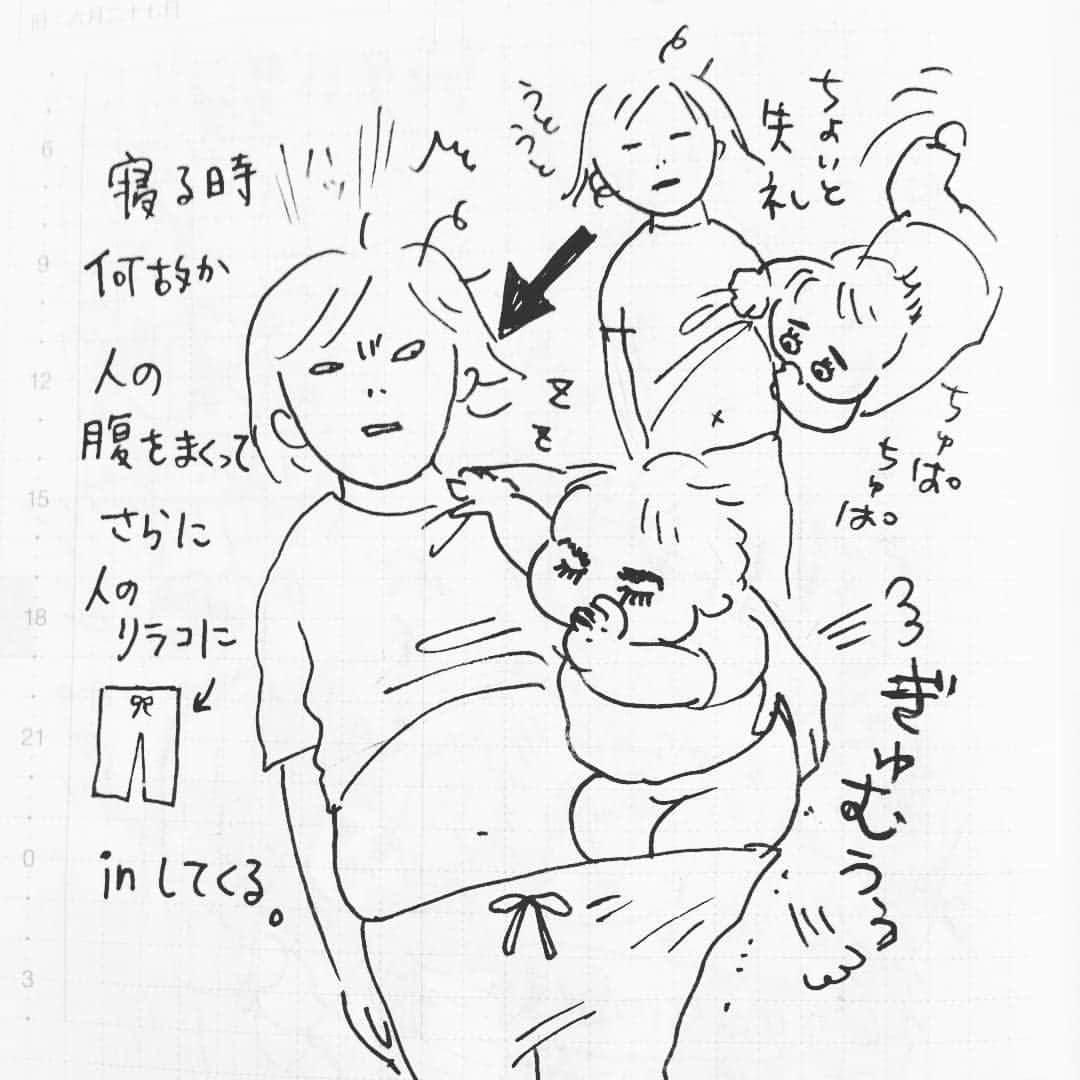 寝る時
何故か
人の
腹をまくって
さらに
人の
リラコに
inしてくる。
ハッ
うと
うと
ちょいと
失礼
ちゅぱ。
ちゅぱ。
z
z
ぎゅむうぅ
6
9
12
15
18
21
0
3